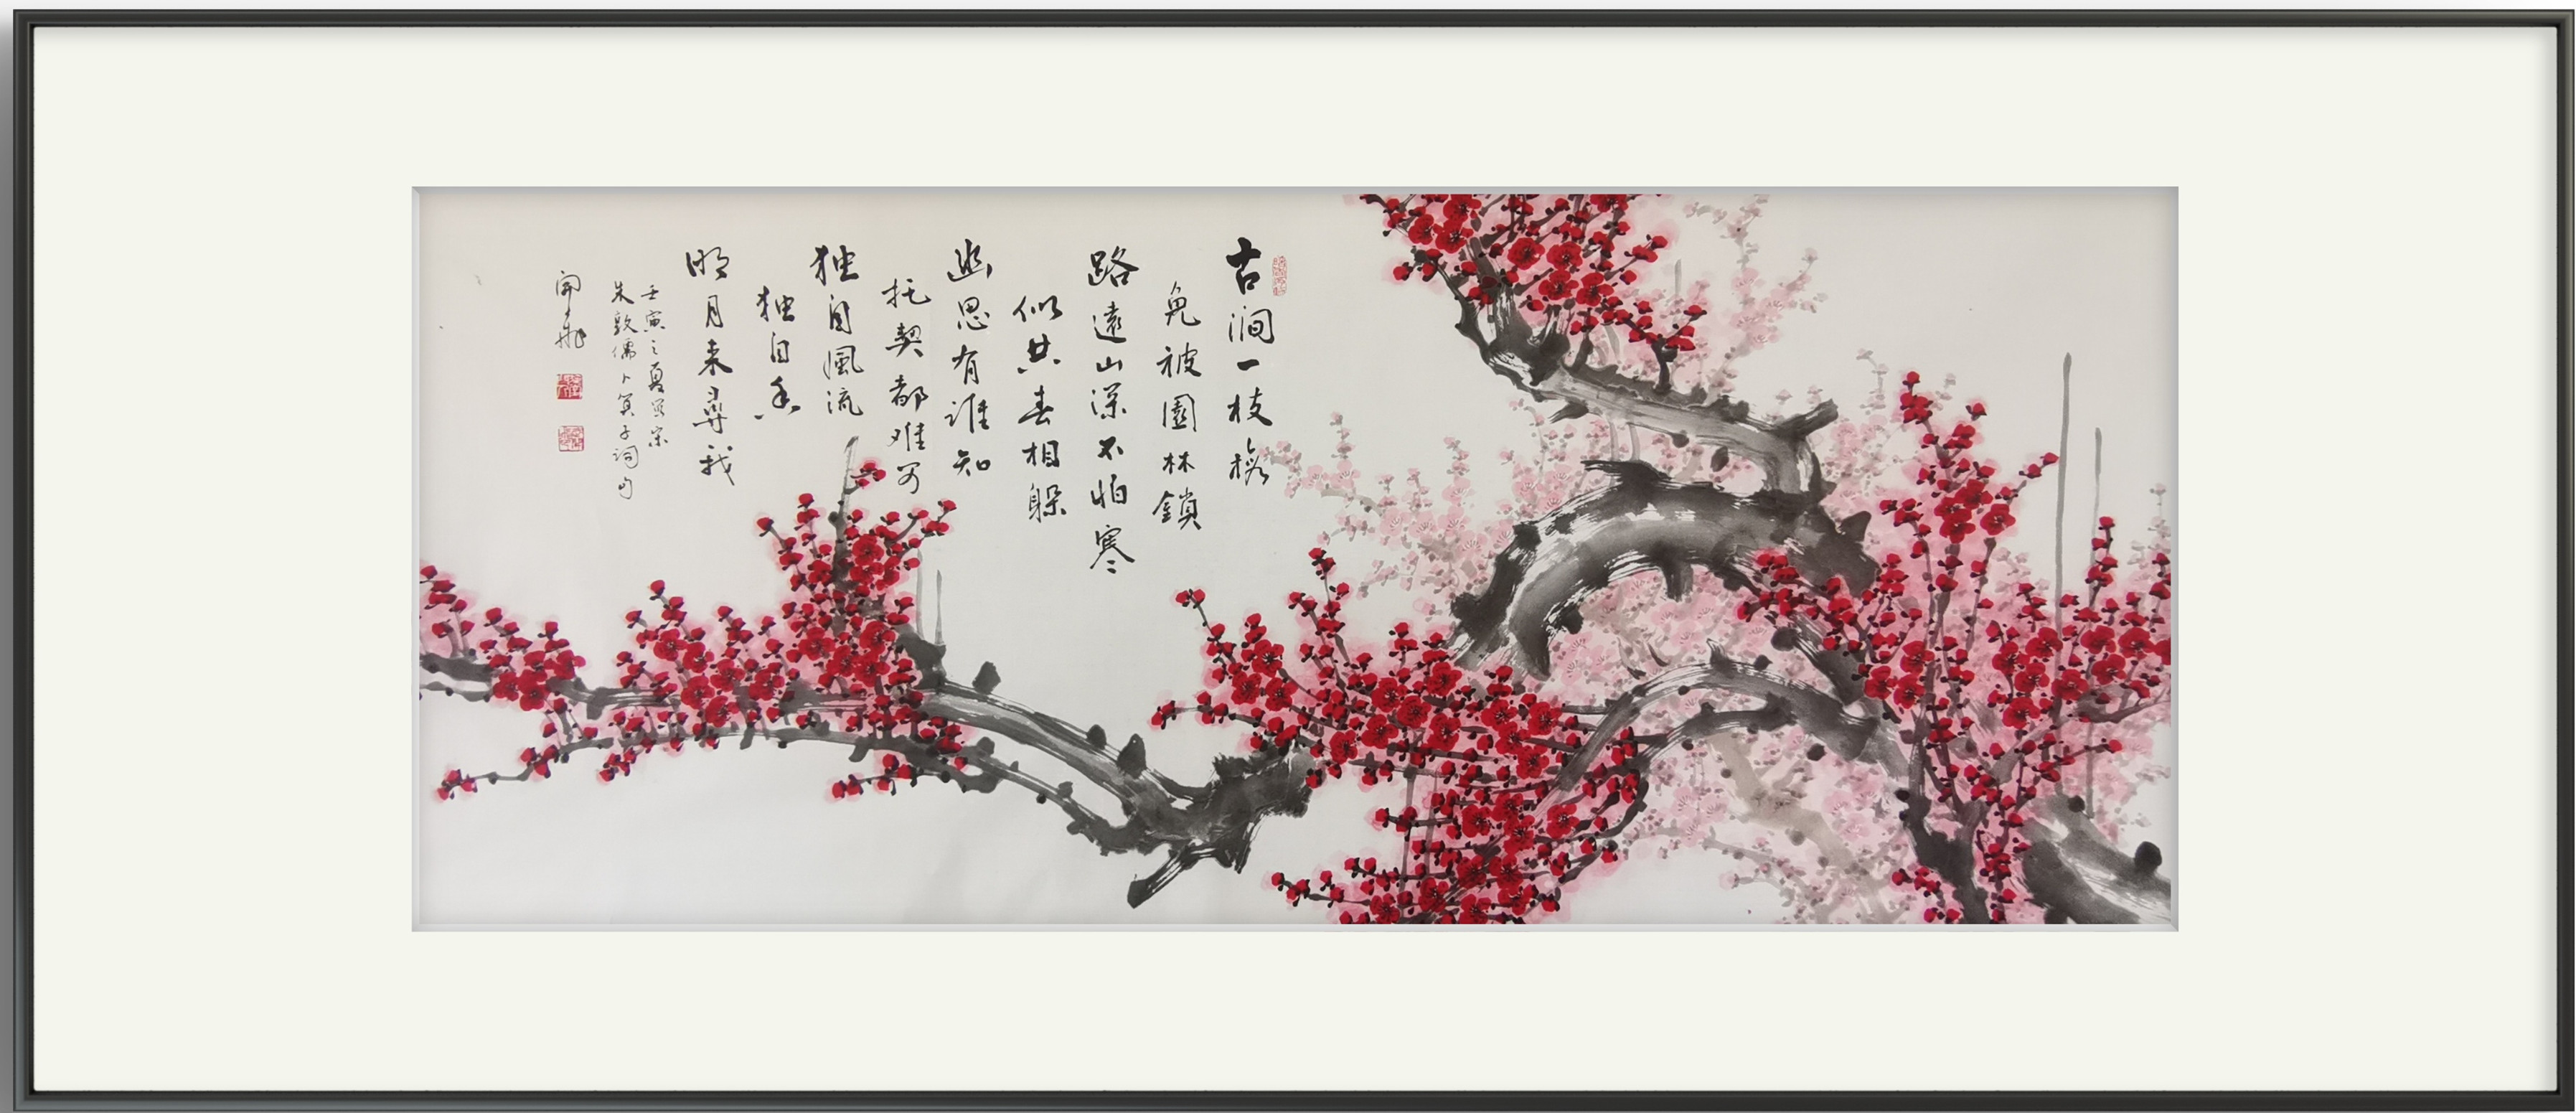 古涧一枝梅
免被園林鎖
路遠山深不怕寒
似共春相躲
幽思有谁知
托契都难可
独自風流
独自香
明月来尋我
壬寅之夏写宋
朱敦儒卜算子词句